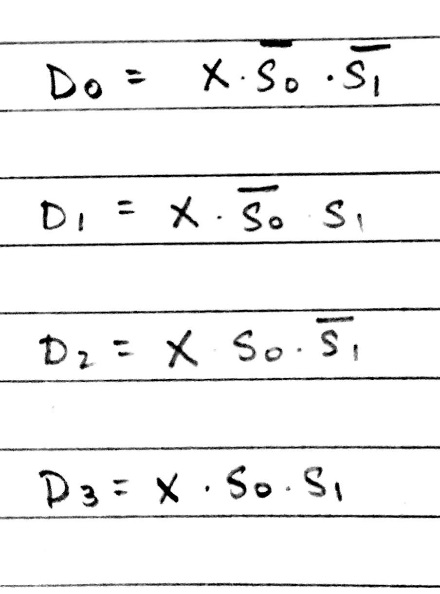 D₀ = X · S̅₀ · S̅₁
D₁ = X · S̅₀ S₁
D₂ = X S₀ · S̅₁
D₃ = X · S₀ · S₁